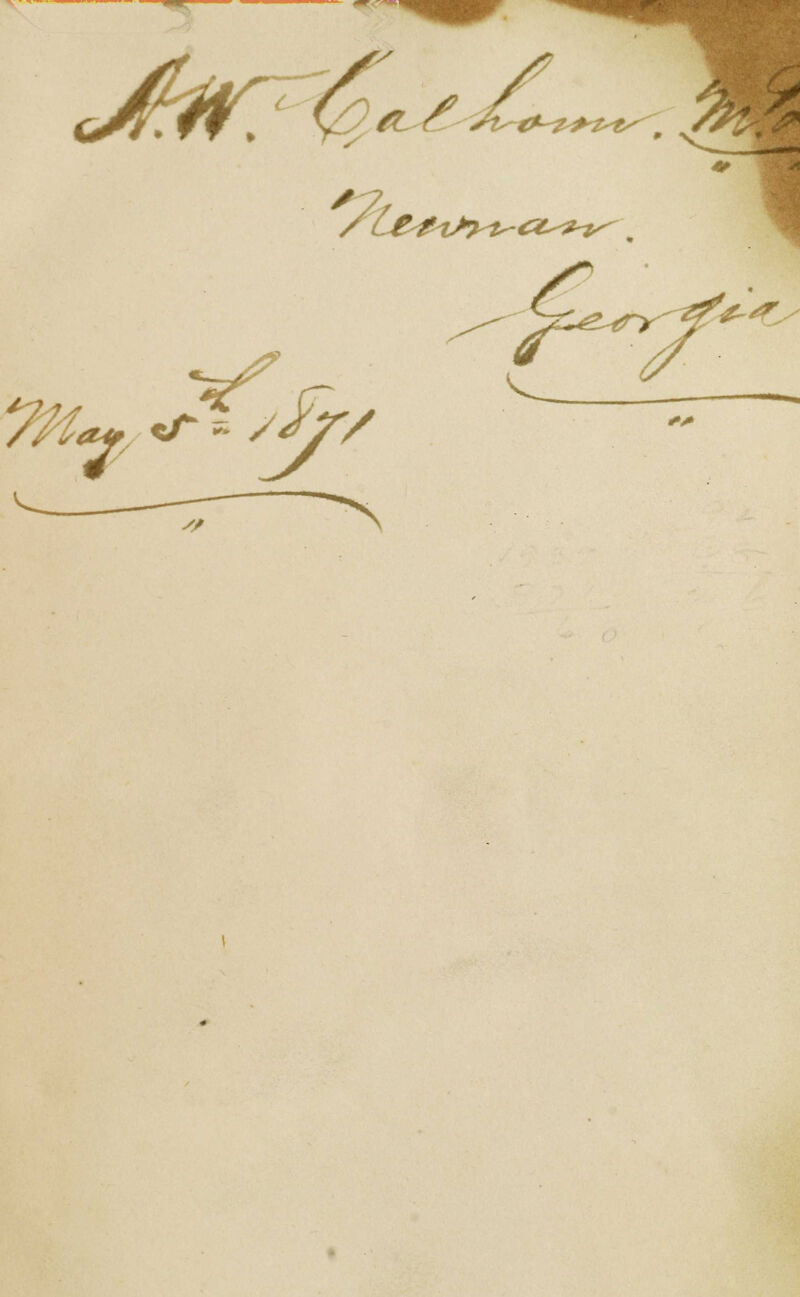 A.W. Calhoun. M.D.
Newnan.
Georgia
May 5th 1871